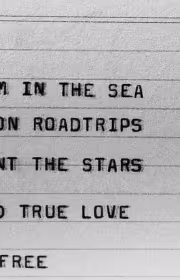 M IN THE SEA
ON ROADTRIPS
NT THE STARS
TRUE LOVE
FREE